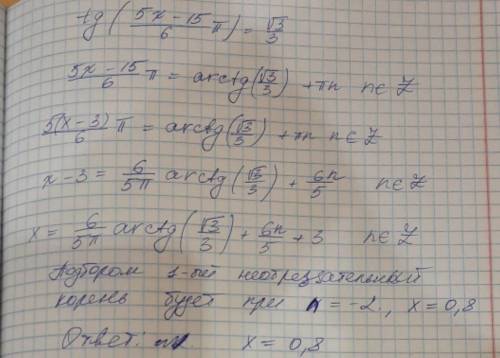 tg(\frac{5x-15}{6}π) = \frac{√3}{3}
\frac{5x-15}{6}π = arctg(\frac{√3}{3}) + πn n∈Z
\frac{5(x-3)}{6}π = arctg(\frac{√3}{3}) + πn n∈Z
x-3 = \frac{6}{5π} arctg(\frac{√3}{3}) + \frac{6n}{5} n∈Z
x = \frac{6}{5π} arctg(\frac{√3}{3}) + \frac{6n}{5} + 3 n∈Z
Подбором 1-ый неотрицательный
корень будет при n = -2., x = 0,8
Ответ: x = 0,8